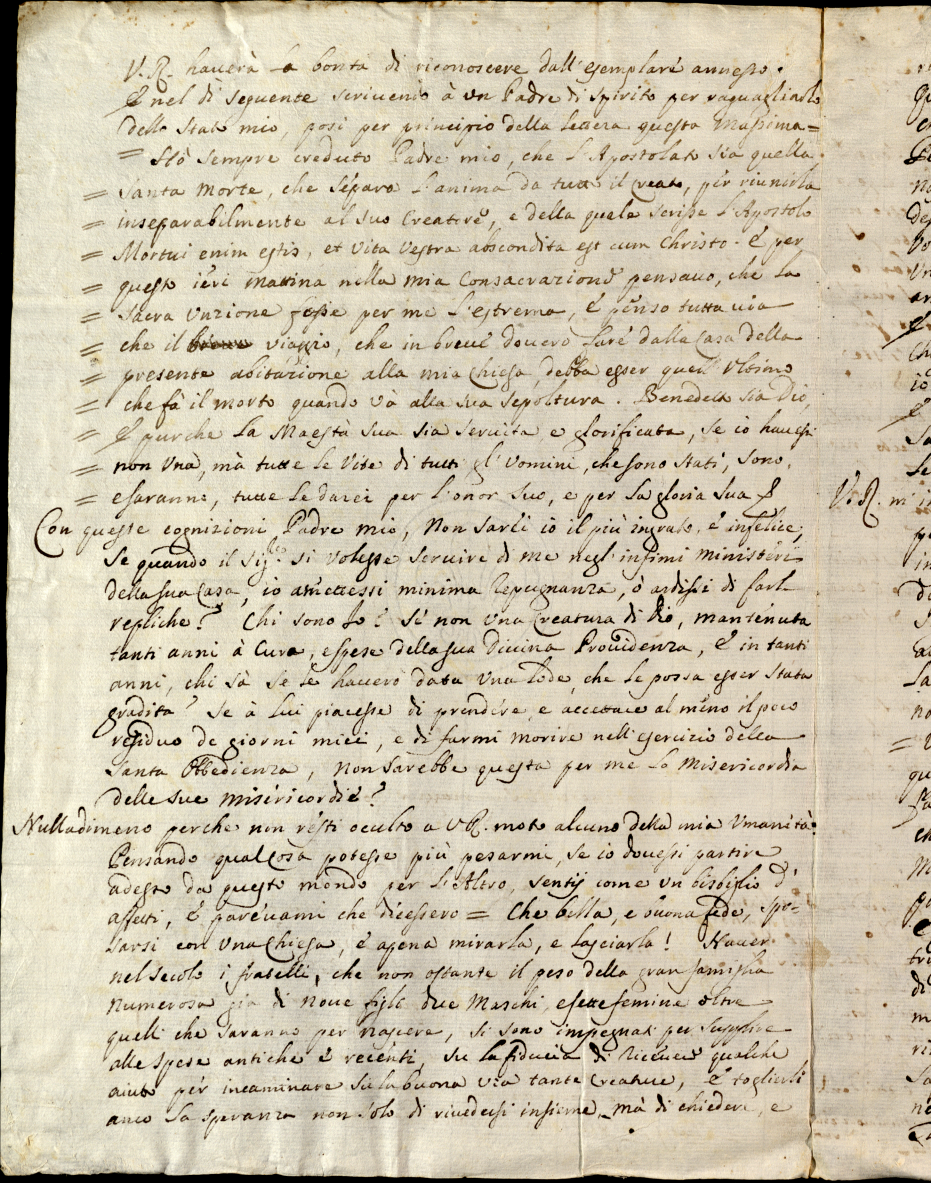 V. R. hauerà la bontà di riconoscere dall'esemplare annesso.
E nel dì seguente scriuendo à un Padre di spirito per raguagliarlo
dello Stato mio, posi per principio della lettera questa Massima =
= Hò sempre creduto Padre mio, che l'Apostolato sia quella
= santa morte, che separa l'anima da tutto il Creato, per riunirla
= inseparabilmente al suo Creatore, e della quale scrisse l'Apostolo
= Mortui enim estis, et vita vestra abscondita est cum Christo. E per
= questo ieri mattina nella mia Consacrazione pensauo, che la
= sacra Unzione fosse per me l'estrema, e penso tutta uia
= che il viaggio, che in breue douerò fare dalla Casa della
= presente abitazione alla mia Chiesa, debba esser quell'Ultimo
= che fà il morto quando và alla sua sepoltura. Benedetto sia Dio,
= E purche la Maestà sua sia seruita e glorificata, se io hauessi
= non Una, mà tutte le Vite di tutti gl'Uomini, che sono stati, sono,
= e saranno, tutte le darei per l'onor suo, e per la gloria sua
Con queste cognizioni Padre mio, Non sarei io il più ingrato, e infelice,
se quando il Sig.re si volesse seruire di me negl'infimi ministeri
della sua Casa, io amettessi minima repugnanza, ò ardissi di farle
repliche? Chi sono Io? Se non una Creatura di Dio, mantenuta
tanti anni à Cura, e spese della sua Diuina Prouidenza, E in tanti
anni, chi sà se le hauerò data Una lode, che le possa esser stata
gradita? Se à lui piacesse di prendere, e accettare al meno il poco
residuo de giorni miei, e di farmi morire nell'esercizio della
Santa Obbedienza, non sarebbe questa per me la Misericordia
delle sue misericordie?
Nulladimeno perche non resti occulto a V. R. moto alcuno della mia Umanità:
Pensando qual Cosa potesse più pesarmi, se io douessi partire
adesso da questo mondo per l'Altro, sentij come un bisbiglio d'
affetti, E pareuami che dicessero = Che bella, e buona fede, spo-
sarsi con Una Chiesa, e apena mirarla, e lasciarla! Hauer
nel secolo i fratelli, che non ostante il peso della gran famiglia
numerosa già di noue figli due Maschi, e sette femine oltre
quelli che saranno per nascere, si sono impegnati per supplire
alle spese antiche e recenti, su la fiducia di riceuere qualche
aiuto per incaminare su la buona via tante Creature, E toglierli
anco la speranza non solo di riuedersi insieme, mà di chiedere, e
V. R. m